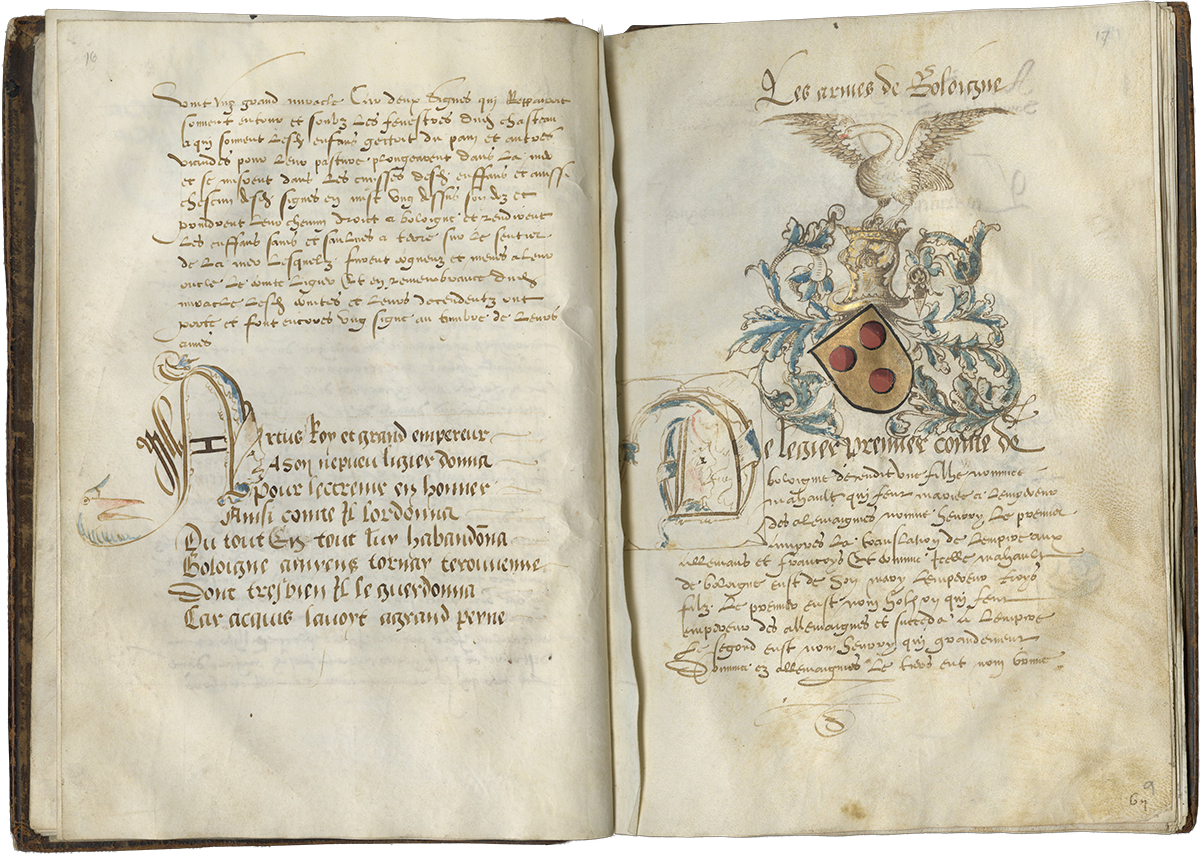 16
vint ung grand miracle Car deux signes qui Reppairoit
souvent entour et soubz Les fenestres dud chasteau
la qui souvent Lesd enfans gectoit du pain et autres
viandes pour Leur pasture plongearent dans La mer
et se mirent dans Les cuisses desd enffans et aussi
chescun desd signes en mist ung dessus son doz et
prindrent Leur chemin droict a boloigne et rendirent
Les enffans sains et saulines a terre sur Le sentier
de La mer Lesquelz furent cogneuz et menes a Leur
oncle Le conte Ligier Et en remembrance dud
miracle Lesd contes et Leurs decendentz ont
porte et font encores ung signe au timbre de Leurs
armes
Artus Roy et grand empereur
A son nepueu ligier donna
Pour lecreuir en honner
Ainsi comte Il lordonna
Du tout En tout luy habandona
Boloigne amyens tornay terouvenne
Dont tres bien Il le guerdonna
Car acquis lavoit a grand peyne
17
Les armes de Boloigne
De legier premier comte de
boloigne decendit une filhe nommee
mahault qui feut mariee a Lempereur
des allemaignes nomme Henrry Le premier
empres La translation de Lempire aux
allemans et francoys Et comme Icelle mahault
de boloigne eust de son mary Lempereur troys
filz Le premier eust nom hothon qui feut
empereur des allemaignes et succeda a Lempire
Le segond eust nom henrry qui grandement
domina ez allemaignes Le tiers eut nom
9
67